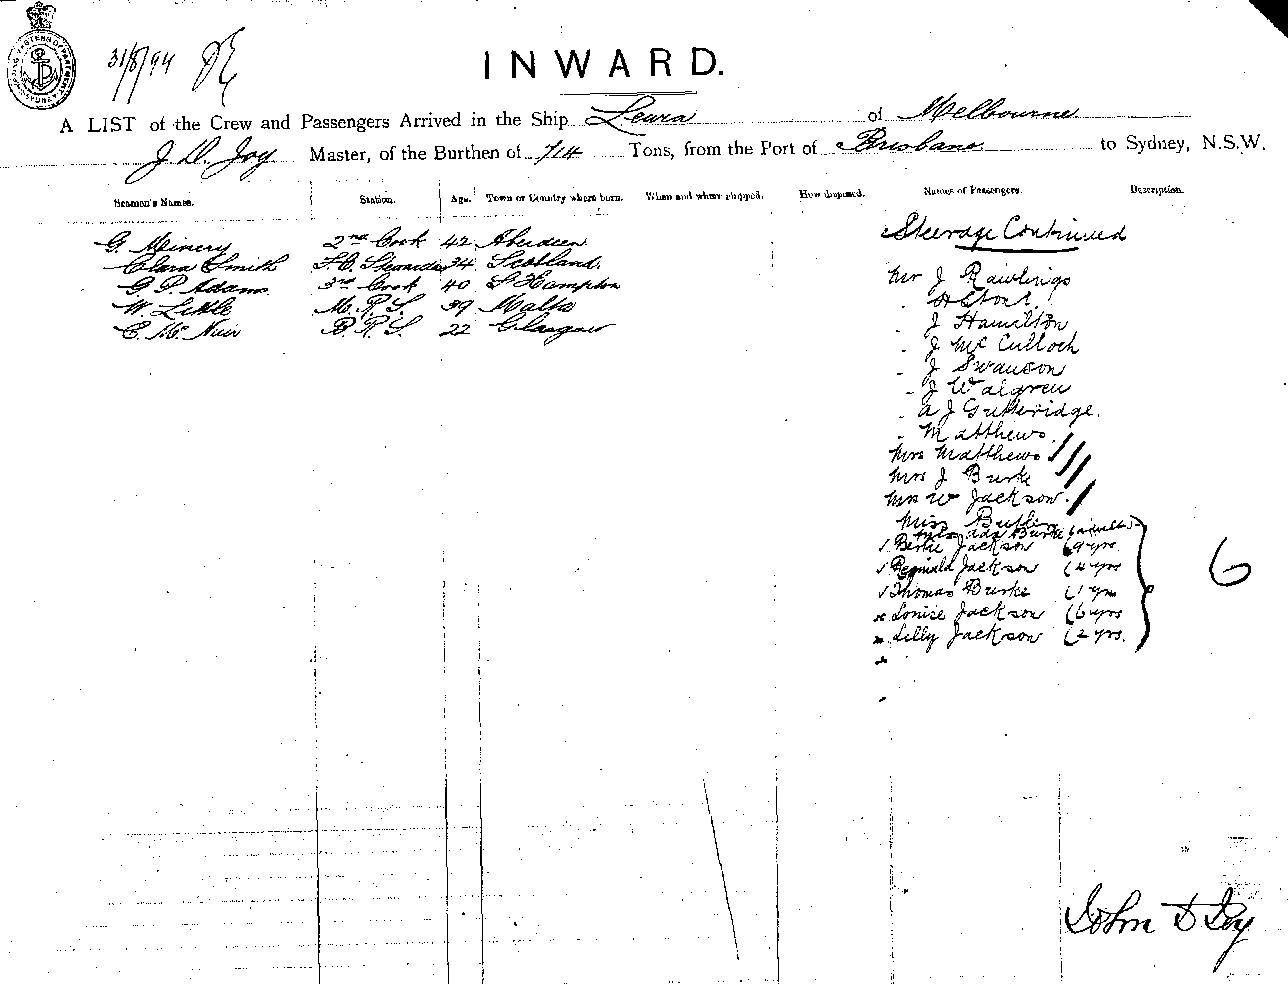 31/8/94
INWARD.
A LIST of the Crew and Passengers Arrived in the Ship Leura of Melbourne
J. D. Joy Master, of the Burthen of 714 Tons, from the Port of Brisbane to Sydney, N.S.W.
Seamen's Names. Station. Age. Town or Country where born. When and where shipped. How disposed. Names of Passengers. Description.
Steerage Continued
G. Minery 2nd Cook 42 Aberdeen
Clara Smith 34 Scotland.
G. P. Adams 3rd Cook 40 S Hampton
W. Little M. R. S. 39 Malta
C. Mc Nuir B. R. S. 22 Glasgow
Mr J Rawlings
" J Hamilton
" J McCulloch
" J Swanson
" J Walgren
" A J Gutteridge.
" Matthews
Mrs Matthews
Mrs J Burke
Mrs W Jackson
Miss
Burke (adult)
Bertie Jackson (9 yrs
Reginald Jackson (4 yrs
Thomas Burke (1 yr
Louise Jackson (6 yrs
Lilly Jackson (2 yrs.
6
John D Joy